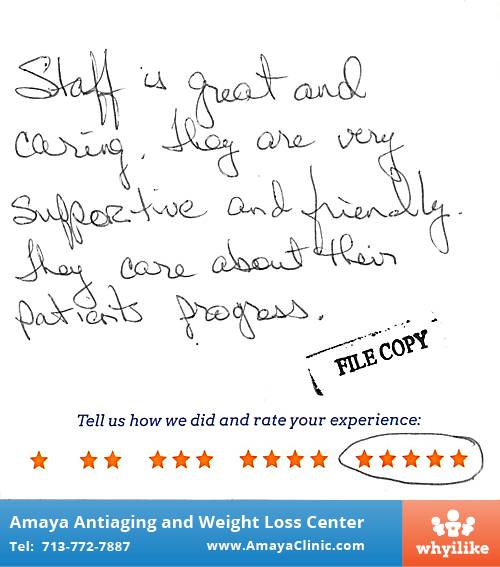 Staff is great and
caring. They are very
supportive and friendly.
They care about their
patients progress.
FILE COPY
Tell us how we did and rate your experience:
Amaya Antiaging and Weight Loss Center
Tel: 713-772-7887 www.AmayaClinic.com
whyilike